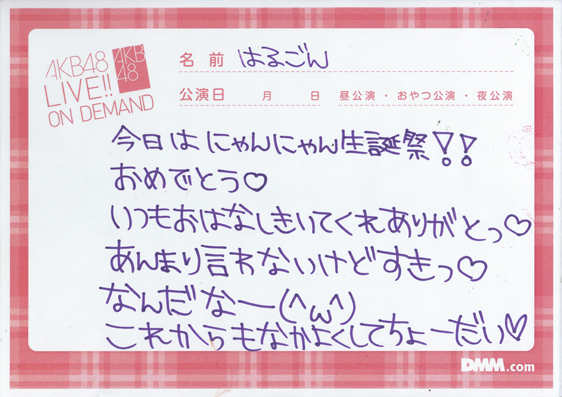 AKB48
LIVE!!
ON DEMAND
AKB
48
名前 はるごん
公演日 月 日 昼公演・おやつ公演・夜公演
今日は にゃんにゃん生誕祭!!
おめでとう♡
いつもおはなしきいてくれありがとっ♡
あんまり言わないけどすきっ♡
なんだなー(^ω^)
これからもなかよくしてちょーだい♡
DMM.com